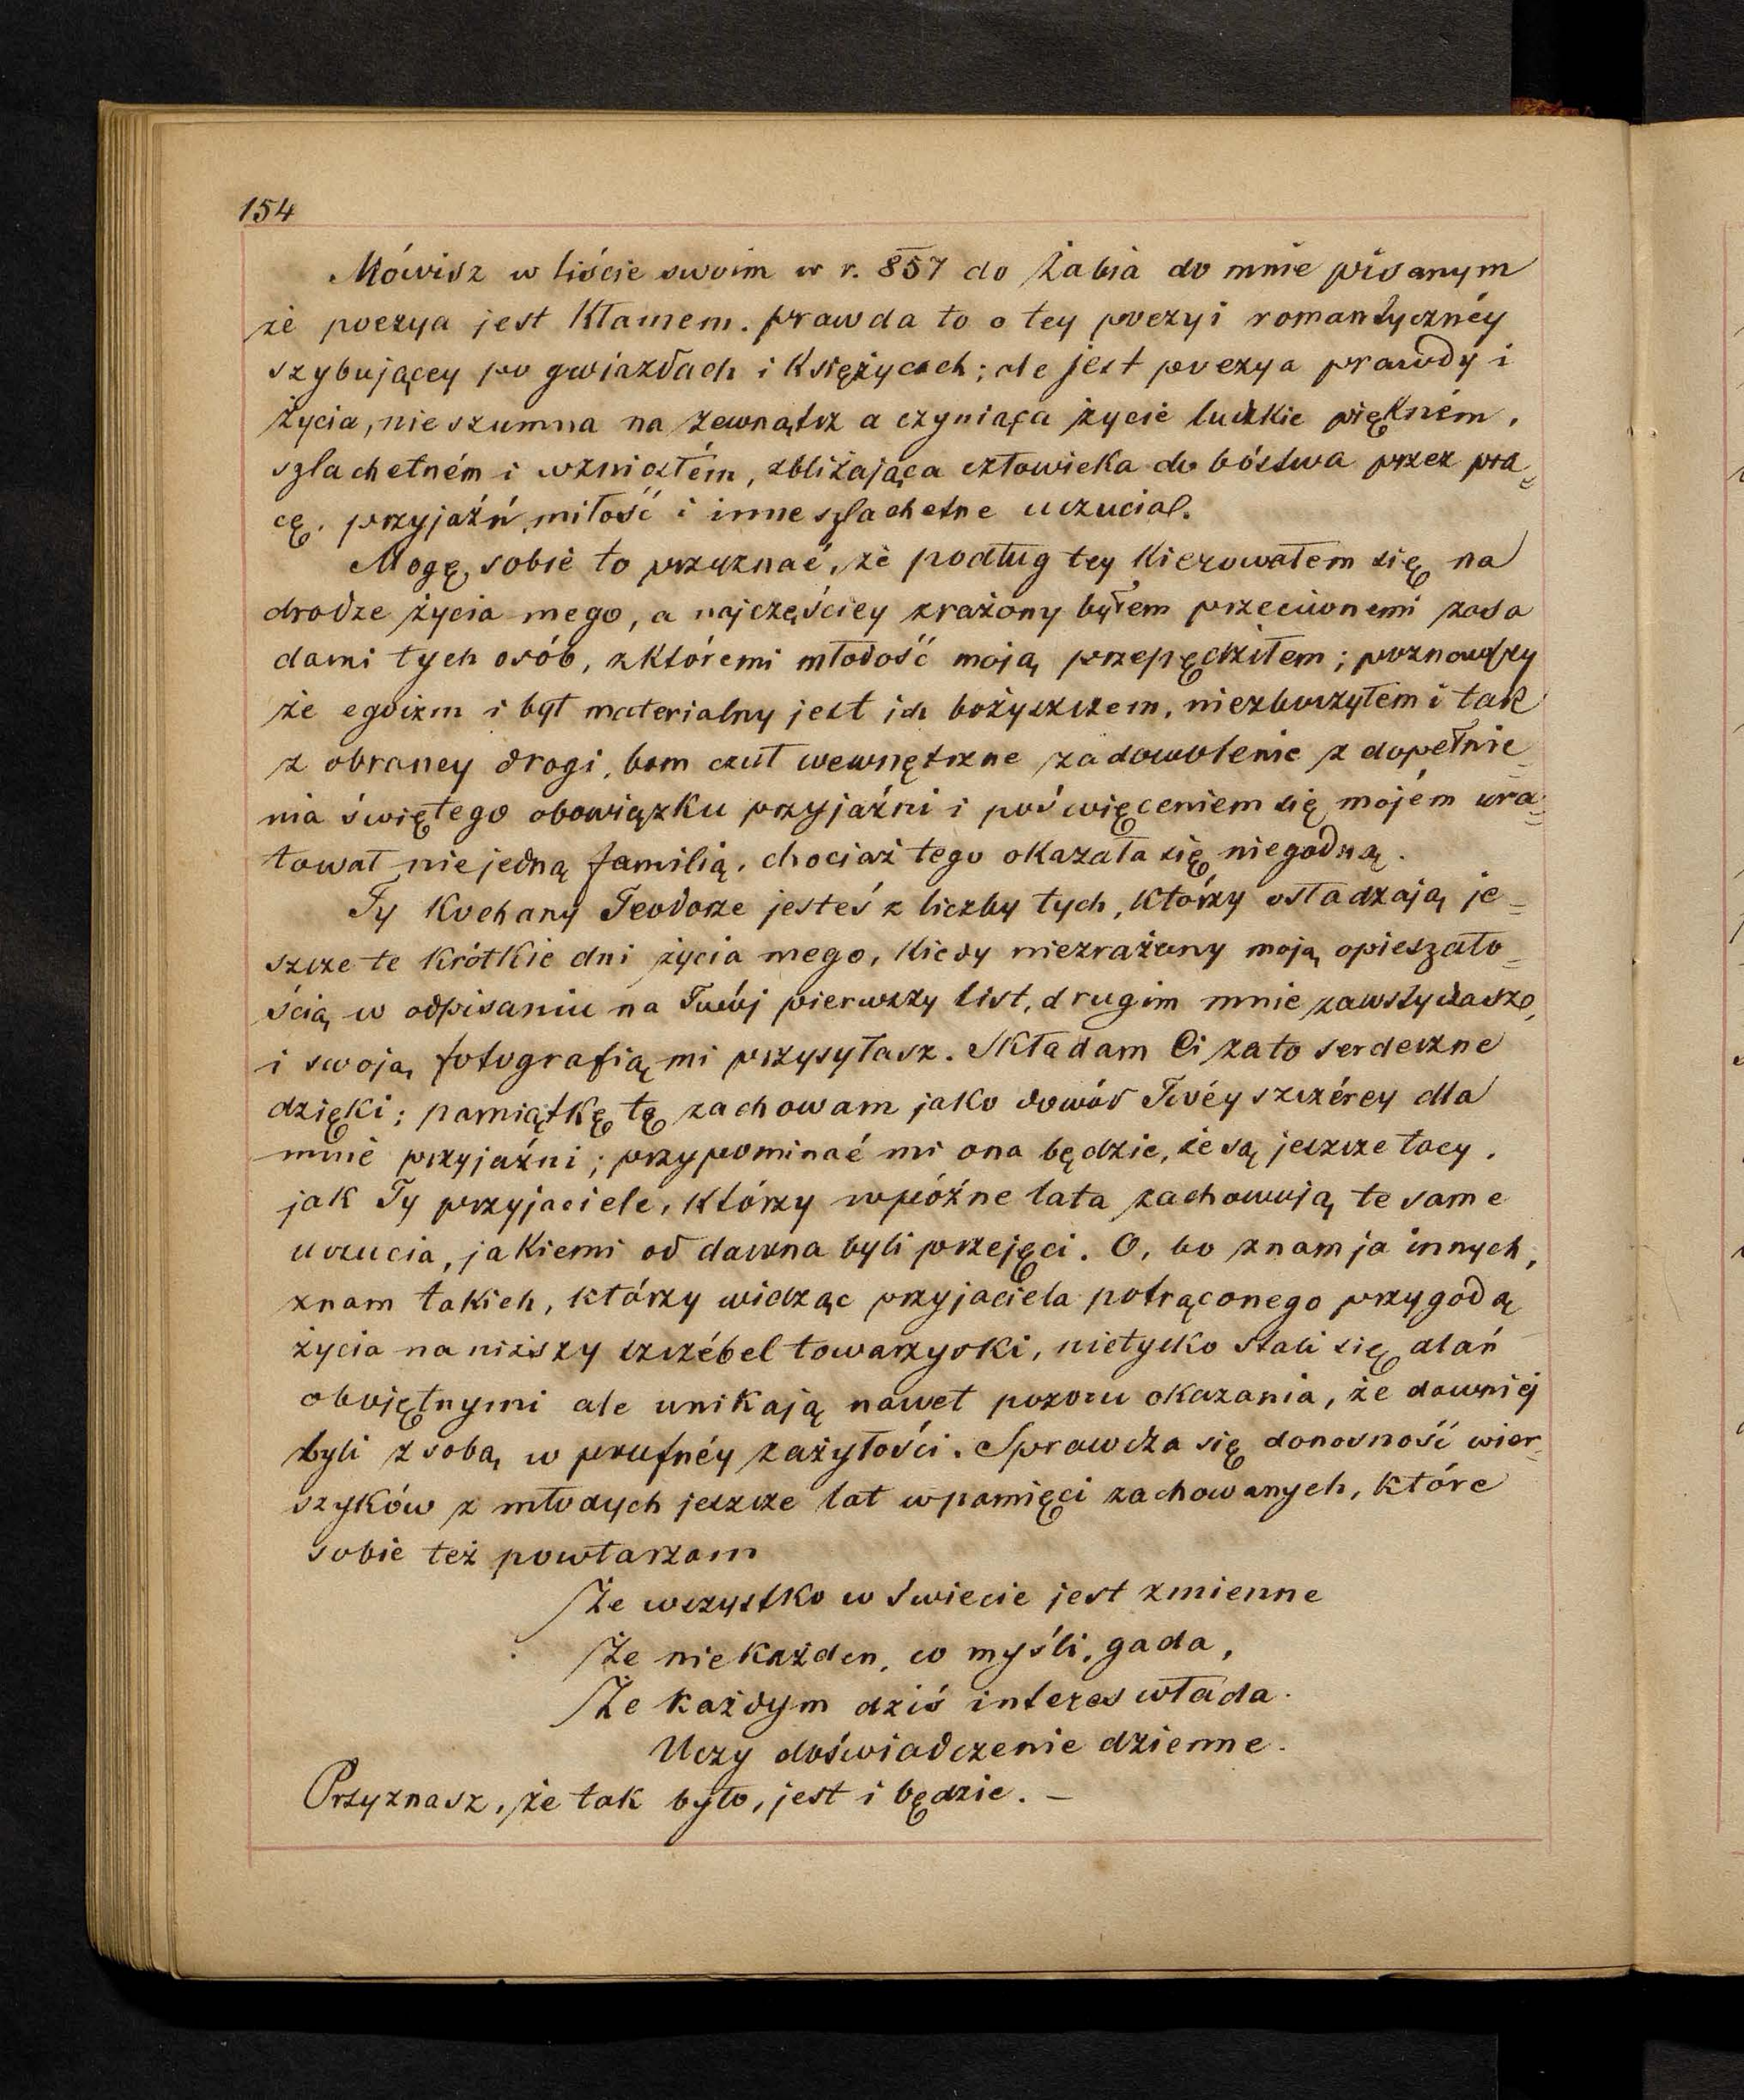 154
Mówisz w liście swoim w r. 857 do Żabia do mnie pisanym
że poezya jest kłamem. prawda to o tey poezyi romantycznéy
szybującey po gwiazdach i księżycach; ale jest poezya prawdy i
życia, nie szumna na zewnątrz a czyniąca życie ludzkie piękném,
szlachetném i wzniosłém, zbliżająca człowieka do bóstwa przez pra=
cę, przyjaźń, miłość i inne szlachetne uczucia.
Mogę sobie to przyznać, że podług tey kierowałem się na
drodze życia mego, a najczęściey zrażony byłem przeciwnemi zasa
dami tych osób, z któremi młodość moją przepędziłem; poznawszy
że egoizm i byt materialny jest ich bożyszczem, niezboczyłem i tak
z obraney drogi, bom czuł wewnętrzne zadowolenie z dopełnie=
nia świętego obowiązku przyjaźni i poświęceniem się mojém ura=
tował nie jedną familią, chociaż tego okazała się niegodną.
Ty kochany Teodorze jesteś z liczby tych, którzy osładzają je=
szcze te krótkie dni życia mego, kiedy niezrażony moją opieszało=
ścią w odpisaniu na Twój pierwszy list, drugim mnie zawstydzasz,
i swoją fotografią mi przysyłasz. Składam Ci za to serdeczne
dzięki; pamiątkę tę zachowam jako dowód Twéy szczérey dla
mnie przyjaźni; przypominać mi ona będzie, że są jeszcze tacy,
jak Ty przyjaciele, którzy w późne lata zachowują te same
uczucia, jakiemi od dawna byli przejęci. O, bo znam ja innych,
znam takich, którzy widząc przyjaciela potrąconego przygodą
życia na niższy szczébel towarzyski, nietylko stali się dlań
obojętnymi ale unikają nawet pozoru okazania, że dawniej
byli z sobą w poufnéy zażyłości. Sprawdza się donosność wier=
szyków z młodych jeszcze lat w pamięci zachowanych, które
sobie też powtarzam
Że wszystko w świecie jest zmienne
Że nie każden, co myśli, gada,
Że każdym dziś interes włada.
Uczy doświadczenie dzienne.
Przyznasz, że tak było, jest i będzie. –